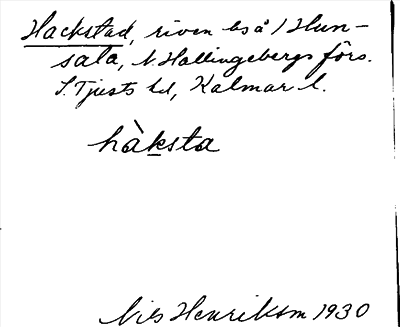 Hackstad, riven bs å 1 Hun-
sala, V. Hallingebergs förs.
S. Tjusts hd, Kalmar l.
hàksta
Nils Henrikson 1930